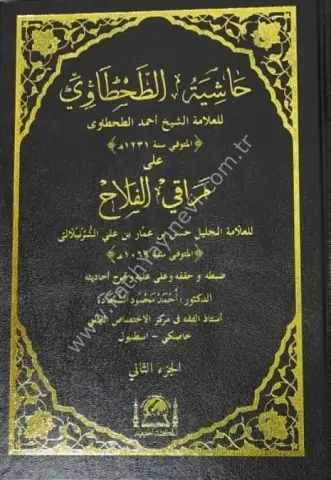 حاشية الطحطاوي
للعلامة الشيخ أحمد الطحطاوى
﴿المتوفى سنة ١٢٣١هـ﴾
على
مراقي الفلاح
للعلامة الجليل حسن بن عمار بن علي الشرنبلالي
﴿المتوفى سنة ١٠٦٩هـ﴾
ضبطه و حققه وعلق عليه وخرج أحاديثه
الدكتور: أحمد محمود الشحادة
أستاذ الفقه في مركز الاختصاص
خاصكي - اسطنبول
الجزء الثاني